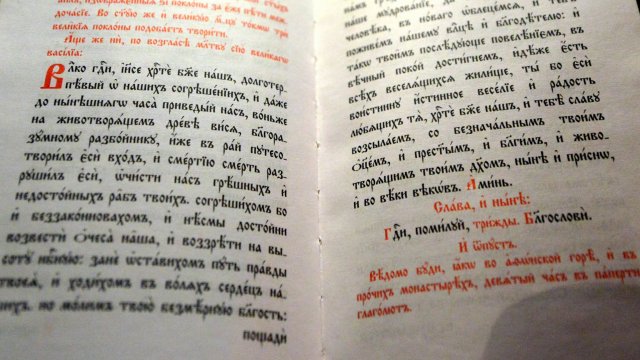 зображе́нныѧ ѕ҃і покло́ны за є҆́же пѣ́ти меж-
доча́сїе. Во ст҃у́ю же и҆ вели́кую м҃цу то́кмѡ трѝ
вели̑кїѧ покло́ны подоба́етъ твори́ти.
А҆́ще же нѝ, по во́згласѣ мл҃тву сїю̀ вели́кагѡ
васі́лїа:
Влⷣко гдⷭ҇и, і҆и҃се хрⷭ҇тѐ бж҃е на́шъ, долготер-
пѣ́вый ѡ҆ на́шихъ согрѣше́нїихъ, и҆ да́же
до ны́нѣшнѧгѡ часа̀ приведы́й на́съ, во́ньже
на животворѧ́щемъ дре́вѣ висѧ̀, бл҃гора-
зу́мному разбо́йнику, и҆́же въ ра́й путесо-
твори́лъ є҆сѝ вхо́дъ, и҆ сме́ртїю сме́рть раз-
руши́лъ є҆сѝ, ѡ҆чи́сти на́съ грѣ́шныхъ и҆
недосто́йныхъ ра̑бъ твои́хъ. согрѣши́хомъ бо
и҆ беззако́нновахомъ, и҆ нѣ́смы досто́йни
возвестѝ ѻ҆чеса̀ на̑ша, и҆ воззрѣ́ти на вы-
соту̀ нбⷭ҇ную: занѐ ѡ҆ста́вихомъ пу́ть пра́вды
твоеѧ̀, и҆ ходи́хомъ въ во́лѧхъ серде́цъ на́-
шихъ. но мо́лимъ твою̀ безмѣ́рную бл҃гость:
пощадѝ
на́ше мудрова́нїе, да ве́тхаго
человѣ́ка, въ но́ваго ѡ҆блеце́мсѧ, и҆ тебѣ̀
поживе́мъ на́шему влⷣцѣ и҆ бл҃годѣ́телю: и҆
та́кѡ твои̑мъ послѣ́дующе повелѣ́нїємъ, въ
вѣ́чный поко́й дости́гнемъ, и҆дѣ́же є҆́сть
всѣ́хъ веселѧ́щихсѧ жили́ще, ты́ бо є҆сѝ
вои́стинну и҆́стинное весе́лїе и҆ ра́дость
лю́бѧщихъ тѧ̀, хрⷭ҇тѐ бж҃е на́шъ, и҆ тебѣ̀ сла́ву
возсыла́емъ, со безнача́льнымъ твои́мъ
ѻ҆ц҃е́мъ, и҆ прест҃ы́мъ, и҆ бл҃ги́мъ, и҆ живо-
творѧ́щимъ твои́мъ дх҃омъ, ны́нѣ и҆ при́снѡ,
и҆ во вѣ́ки вѣкѡ́въ. А҆ми́нь.
Сла́ва, и҆ ны́нѣ:
Гдⷭ҇и, поми́луй, три́жды. Бл҃гословѝ.
И҆ ѿпу́стъ.
Вѣ́домо бу́ди, ꙗ҆́кѡ во а҆ѳѡ́нской горѣ̀, и҆ въ
про́чихъ монастырѣ́хъ, девѧ́тый ча́съ въ па́перти
глаго́лютъ.